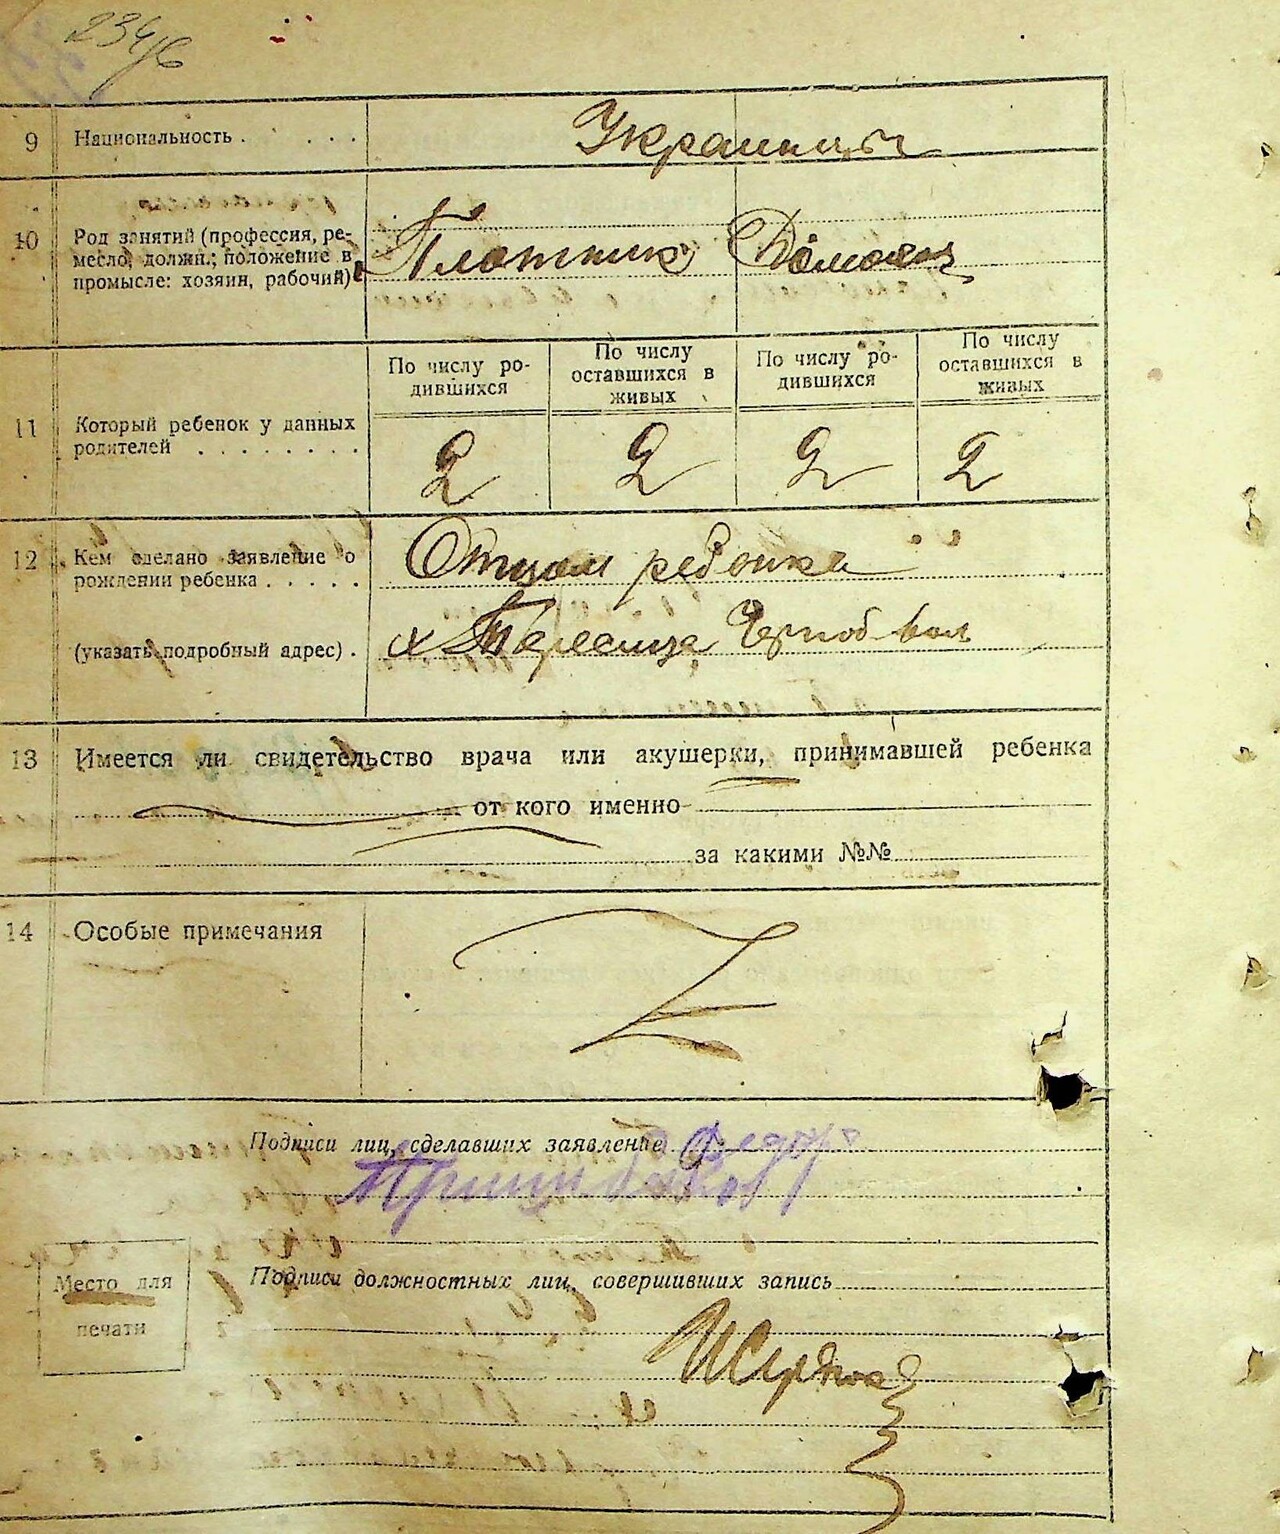 234/6
9 Национальность . . . . Украинцы
10 Род занятий (профессия, ре-
месло, должн.; положение в
промысле: хозяин, рабочий)
Плотник Домохоз
По числу ро-
дившихся
По числу
оставшихся в
живых
По числу ро-
дившихся
По числу
оставшихся в
живых
11 Который ребенок у данных
родителей . . . . . . . .
2 2 2 2
12 Кем сделано заявление о
рождении ребенка . . . . .
Отцом ребенка
(указать подробный адрес) .
х Черноб вол
13 Имеется ли свидетельство врача или акушерки, принимавшей ребенка
от кого именно
за какими №№
14 Особые примечания
Подписи лиц, сделавших заявление Федор
Место для
печати
Подписи должностных лиц, совершивших запись